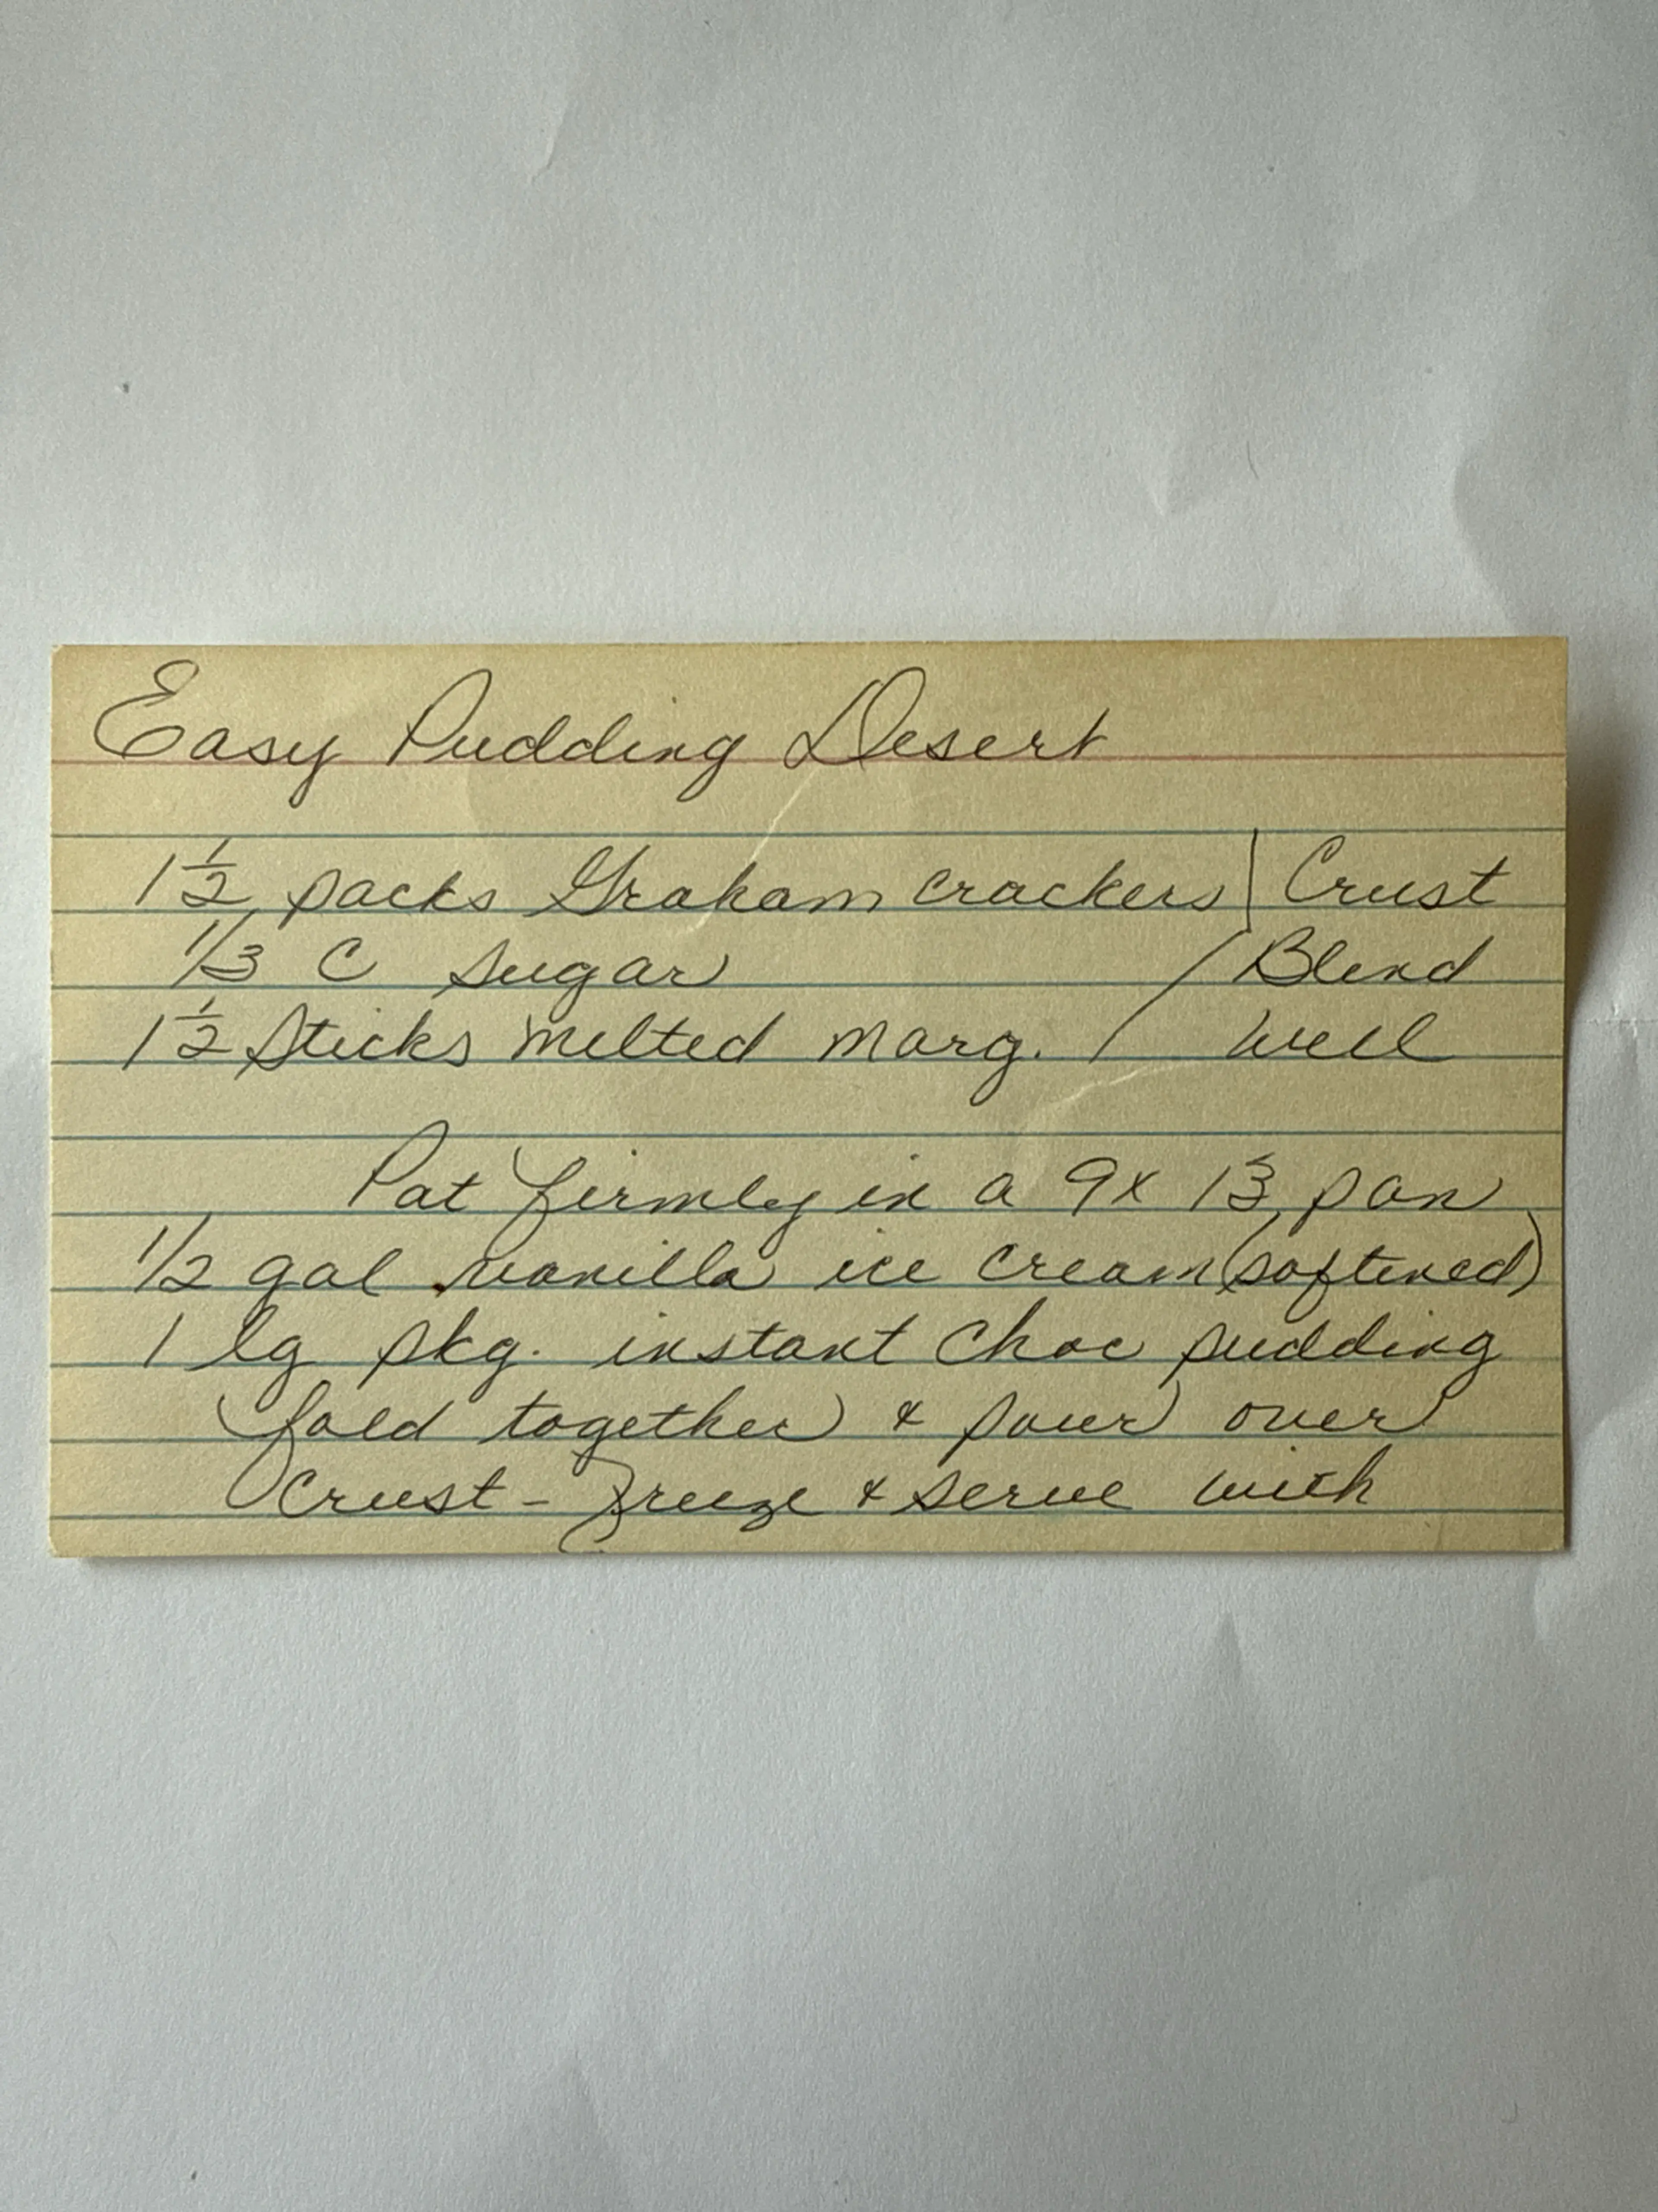 Easy Pudding Desert
1 1/2 packs Graham crackers | Crust
1/3 C sugar / Blend
1 1/2 Sticks melted marg. / well
Pat firmly in a 9x13 pan
1/2 gal vanilla ice cream (softened)
1 lg pkg. instant Choc pudding
fold together & pour over
crust - Freeze & serve with